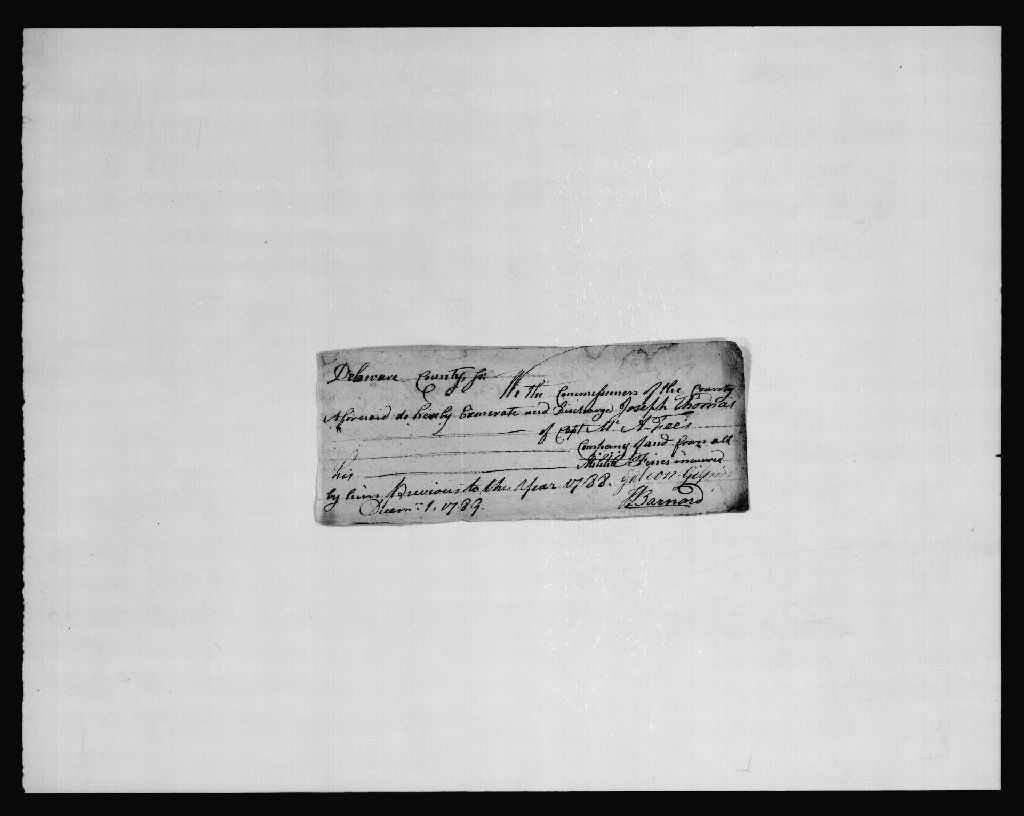 Delaware County ss
We the Commissioners of the County
Aforesaid do hereby Exonerate and Discharge Joseph Thomas
of Capt Mc A Fee's
Company of and from all
his Militia Fines incurred
by him Previous to the Year 1788. Gideon Gilpin
Decemr. 1. 1789. Barnard